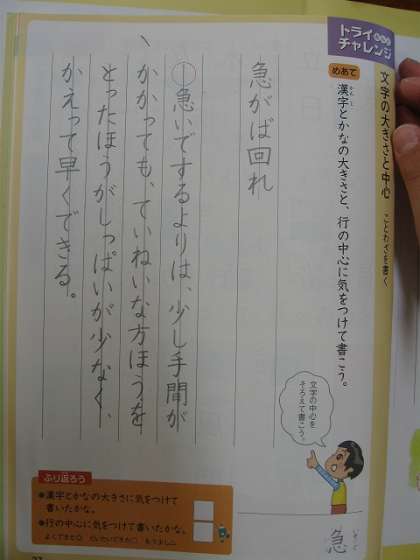 トライ
チャレンジ
文字の大きさと中心 ことわざを書く
めあて
漢字とかなの大きさと、行の中心に気をつけて書こう。
文字の中心を
そろえて書こう。
急
急がば回れ
①急いでするよりは、少し手間が
かかっても、ていねいな方ほうを
とったほうがしっぱいが少なく、
かえって早くできる。
ふり返ろう
●漢字とかなの大きさに気をつけて
書いたかな。
●行の中心に気をつけて書いたかな。
よくできた◎ だいたいできた○ もう少し△
27